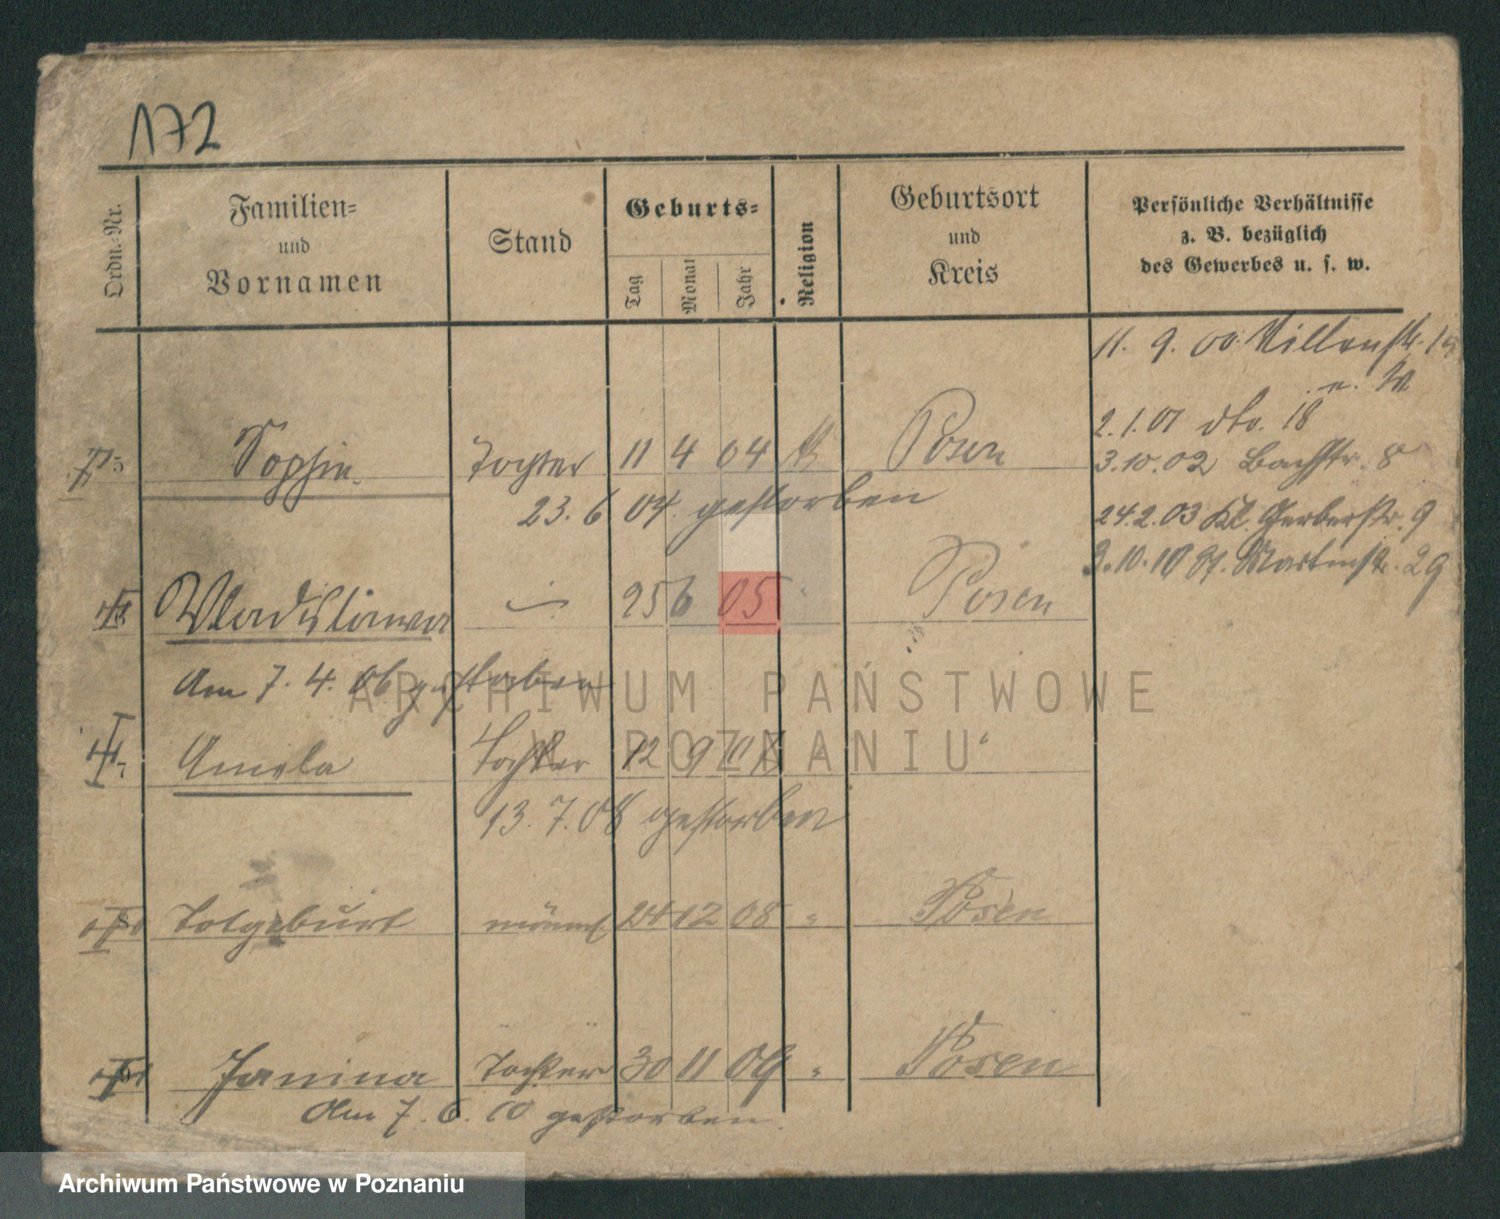 172
Ordn.-Nr.
Familien-
und
Vornamen
Stand
Geburts-
Tag
Monat
Jahr
Religion
Geburtsort
und
Kreis
Persönliche Verhältnisse
z. B. bezüglich
des Gewerbes u. s. w.
11. 9. 00. Villenstr.
2.1.01 dto. 18
3.10.02 Bachstr. 8
Sophie Tochter 11 4 04 K Posen
23. 6 04. gestorben
24.2.03 Kl. Gerberstr. 9
2.10.10 St. Martinstr. 29
Wladislawa 25 6 05 Posen
Am 7. 4. 06 gestorben
Amela Tochter 12 9 07 "
13. 7. 08 gestorben
Totgeburt männl. 24 12 08 " Posen
Janina Tochter 30 11 09 " Posen
Am 7. 6. 10 gestorben
ARCHIWUM PAŃSTWOWE
W POZNANIU
Archiwum Państwowe w Poznaniu